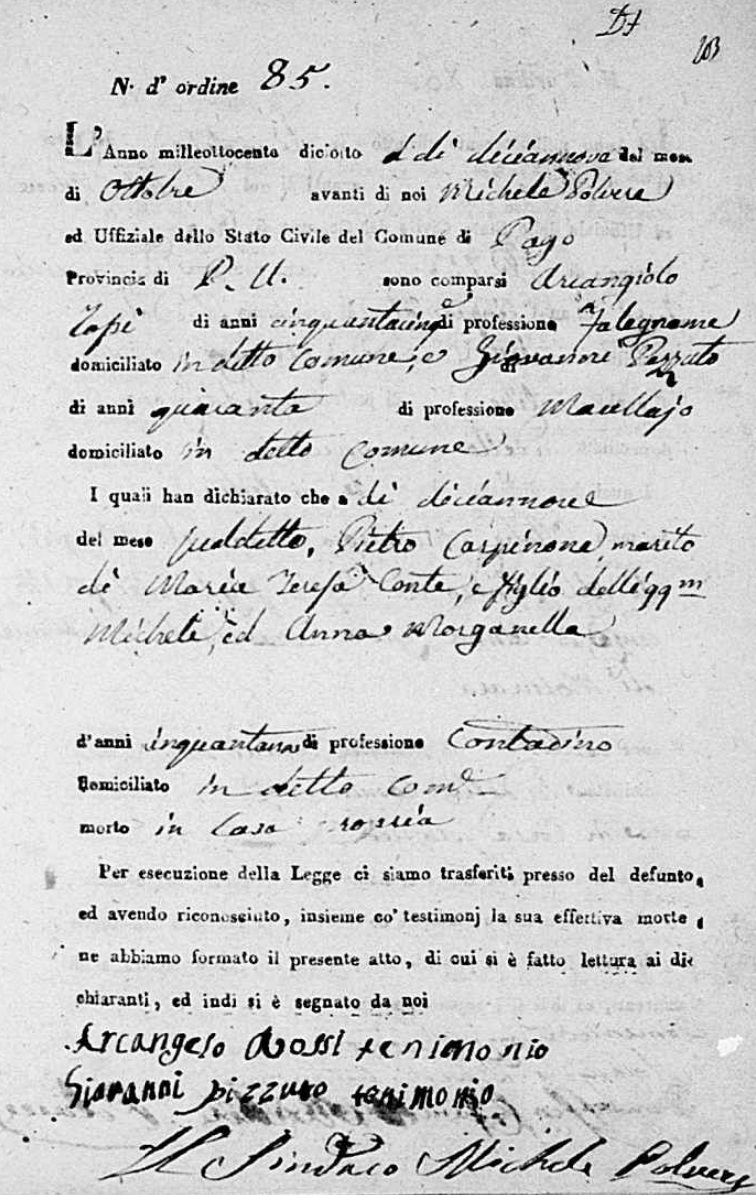 103
N. d' ordine 85.
L'Anno milleottocento diciotto a dì diciannove del mese
di Ottobre avanti di noi Michele Polvere
ed Uffiziale dello Stato Civile del Comune di Pago
Provincia di P. U. sono comparsi Arcangiolo
di anni cinquantacinq di professione Falegname
domiciliato in detto Comune, e Giovanni Pezzuto
di anni quaranta di professione Macellajo
domiciliato in detto Comune
I quali han dichiarato che a dì diciannove
del mese suddetto, Pietro Carpinone marito
di Maria Teresa Conte, e figlio delli qqm
Michele, ed Anna Morganella
d'anni cinquanta di professione Contadino
Domiciliato in detto Come
morto in Casa propria
Per esecuzione della Legge ci siamo trasferiti presso del defunto,
ed avendo riconosciuto, insieme co' testimonj la sua effettiva morte,
ne abbiamo formato il presente atto, di cui si è fatto lettura ai di-
chiaranti, ed indi si è segnato da noi
Arcangelo Rossi tenimonio
Giovanni pizzuto tenimonio
Il Sindaco Michele Polvere